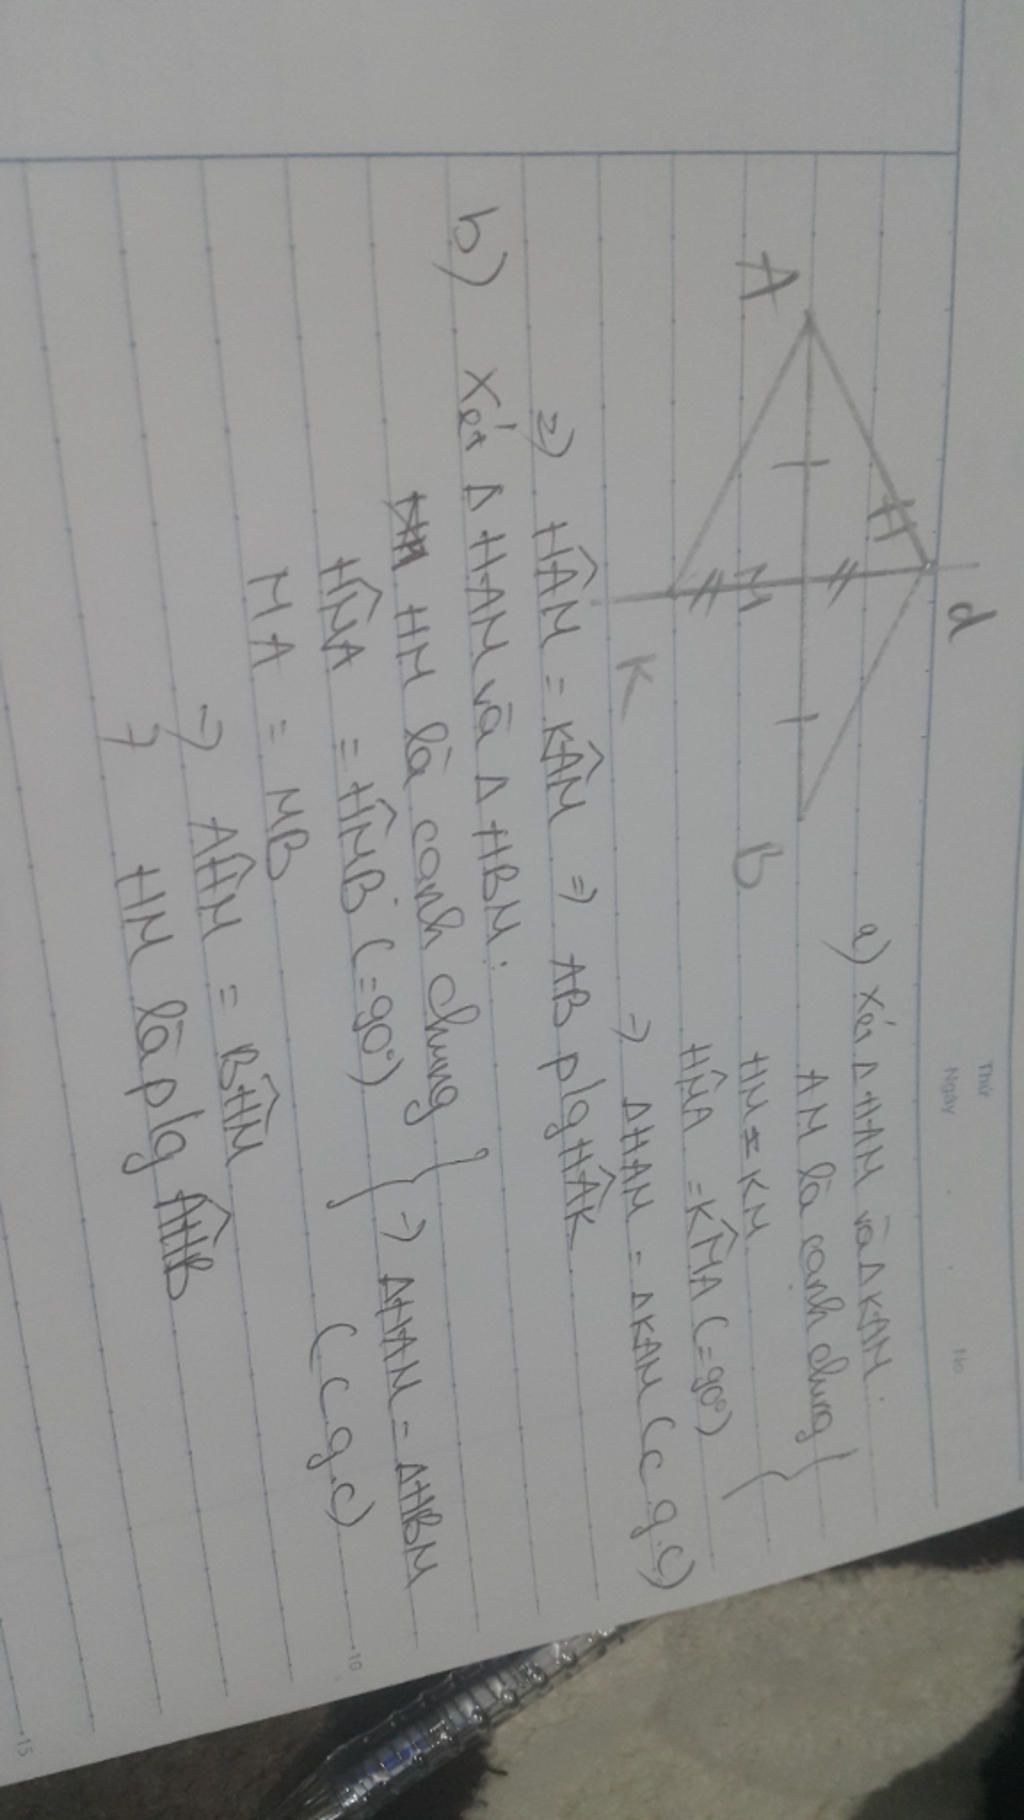 Thứ
Ngày
No.
d
H
A
M
B
K
a) Xét Δ HAM và Δ KAM:
AM là cạnh chung
HM = KM
HM̂A = KM̂A (=90°)
=> ΔHAM = ΔKAM (c.g.c)
=> HÂM = KÂM => AB plg HÂK
b) Xét Δ HAM và Δ HBM:
HM là cạnh chung
HM̂A = HM̂B (=90°)
MA = MB
=> ΔHAM = ΔHBM
(c.g.c)
=> AĤM = BĤM
=> HM là plg AĤB
10
15